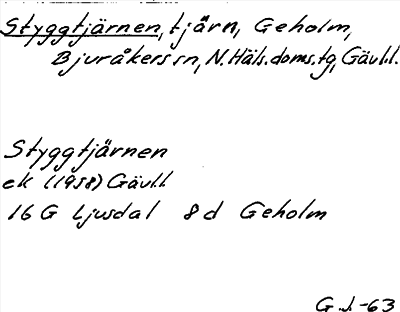 Styggtjärnen, tjärn, Geholm,
Bjuråkers sn, N. Häls. doms. tg, Gävl.l.
Styggtjärnen
ek (1958) Gävl.l
16 G Ljusdal 8 d Geholm
G.J.-63